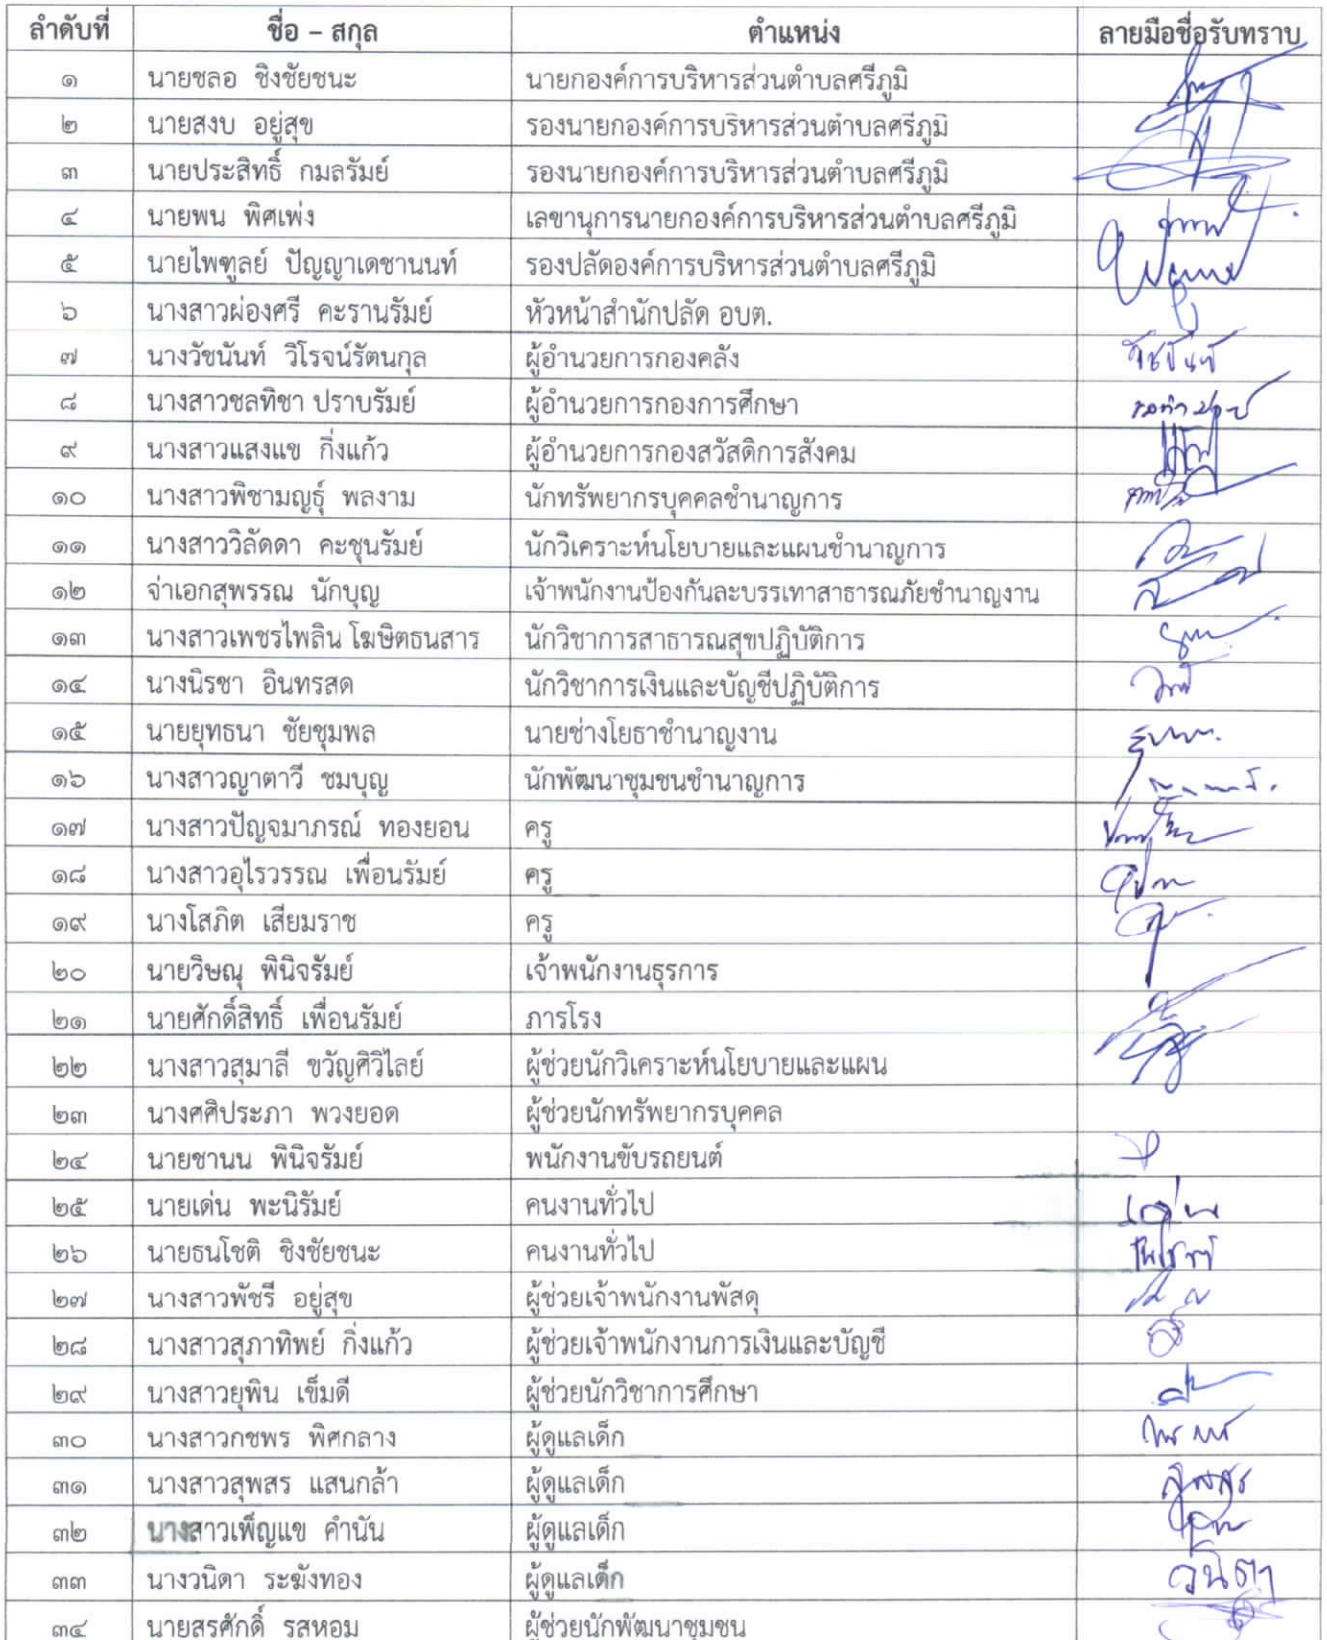 ลำดับที่ ชื่อ – สกุล ตำแหน่ง ลายมือชื่อรับทราบ
๑ นายชลอ ชิงชัยชนะ นายกองค์การบริหารส่วนตำบลศรีภูมิ
๒ นายสงบ อยู่สุข รองนายกองค์การบริหารส่วนตำบลศรีภูมิ
๓ นายประสิทธิ์ กมลรัมย์ รองนายกองค์การบริหารส่วนตำบลศรีภูมิ
๔ นายพน พิศเพ่ง เลขานุการนายกองค์การบริหารส่วนตำบลศรีภูมิ
๕ นายไพฑูลย์ ปัญญาเดชานนท์ รองปลัดองค์การบริหารส่วนตำบลศรีภูมิ
๖ นางสาวผ่องศรี คะรานรัมย์ หัวหน้าสำนักปลัด อบต.
๗ นางวัชนันท์ วิโรจน์รัตนกุล ผู้อำนวยการกองคลัง
๘ นางสาวชลทิชา ปราบรัมย์ ผู้อำนวยการกองการศึกษา
๙ นางสาวแสงแข กิ่งแก้ว ผู้อำนวยการกองสวัสดิการสังคม
๑๐ นางสาวพิชามญธุ์ พลงาม นักทรัพยากรบุคคลชำนาญการ
๑๑ นางสาววิลัดดา คะชุนรัมย์ นักวิเคราะห์นโยบายและแผนชำนาญการ
๑๒ จ่าเอกสุพรรณ นักบุญ เจ้าพนักงานป้องกันละบรรเทาสาธารณภัยชำนาญงาน
๑๓ นางสาวเพชรไพลิน โฆษิตธนสาร นักวิชาการสาธารณสุขปฏิบัติการ
๑๔ นางนิรชา อินทรสด นักวิชาการเงินและบัญชีปฏิบัติการ
๑๕ นายยุทธนา ชัยชุมพล นายช่างโยธาชำนาญงาน
๑๖ นางสาวญาตาวี ชมบุญ นักพัฒนาชุมชนชำนาญการ
๑๗ นางสาวปัญจมาภรณ์ ทองยอน ครู
๑๘ นางสาวอุไรวรรณ เพื่อนรัมย์ ครู
๑๙ นางโสภิต เสียมราช ครู
๒๐ นายวิษณุ พินิจรัมย์ เจ้าพนักงานธุรการ
๒๑ นายศักดิ์สิทธิ์ เพื่อนรัมย์ ภารโรง
๒๒ นางสาวสุมาลี ขวัญศิวิไลย์ ผู้ช่วยนักวิเคราะห์นโยบายและแผน
๒๓ นางศศิประภา พวงยอด ผู้ช่วยนักทรัพยากรบุคคล
๒๔ นายชานน พินิจรัมย์ พนักงานขับรถยนต์
๒๕ นายเด่น พะนิรัมย์ คนงานทั่วไป
๒๖ นายธนโชติ ชิงชัยชนะ คนงานทั่วไป
๒๗ นางสาวพัชรี อยู่สุข ผู้ช่วยเจ้าพนักงานพัสดุ
๒๘ นางสาวสุภาทิพย์ กิ่งแก้ว ผู้ช่วยเจ้าพนักงานการเงินและบัญชี
๒๙ นางสาวยุพิน เข็มดี ผู้ช่วยนักวิชาการศึกษา
๓๐ นางสาวกชพร พิศกลาง ผู้ดูแลเด็ก
๓๑ นางสาวสุพสร แสนกล้า ผู้ดูแลเด็ก
๓๒ นางสาวเพ็ญแข คำนัน ผู้ดูแลเด็ก
๓๓ นางวนิดา ระฆังทอง ผู้ดูแลเด็ก วนิดา
๓๔ นายสรศักดิ์ รสหอม ผู้ช่วยนักพัฒนาชุมชน